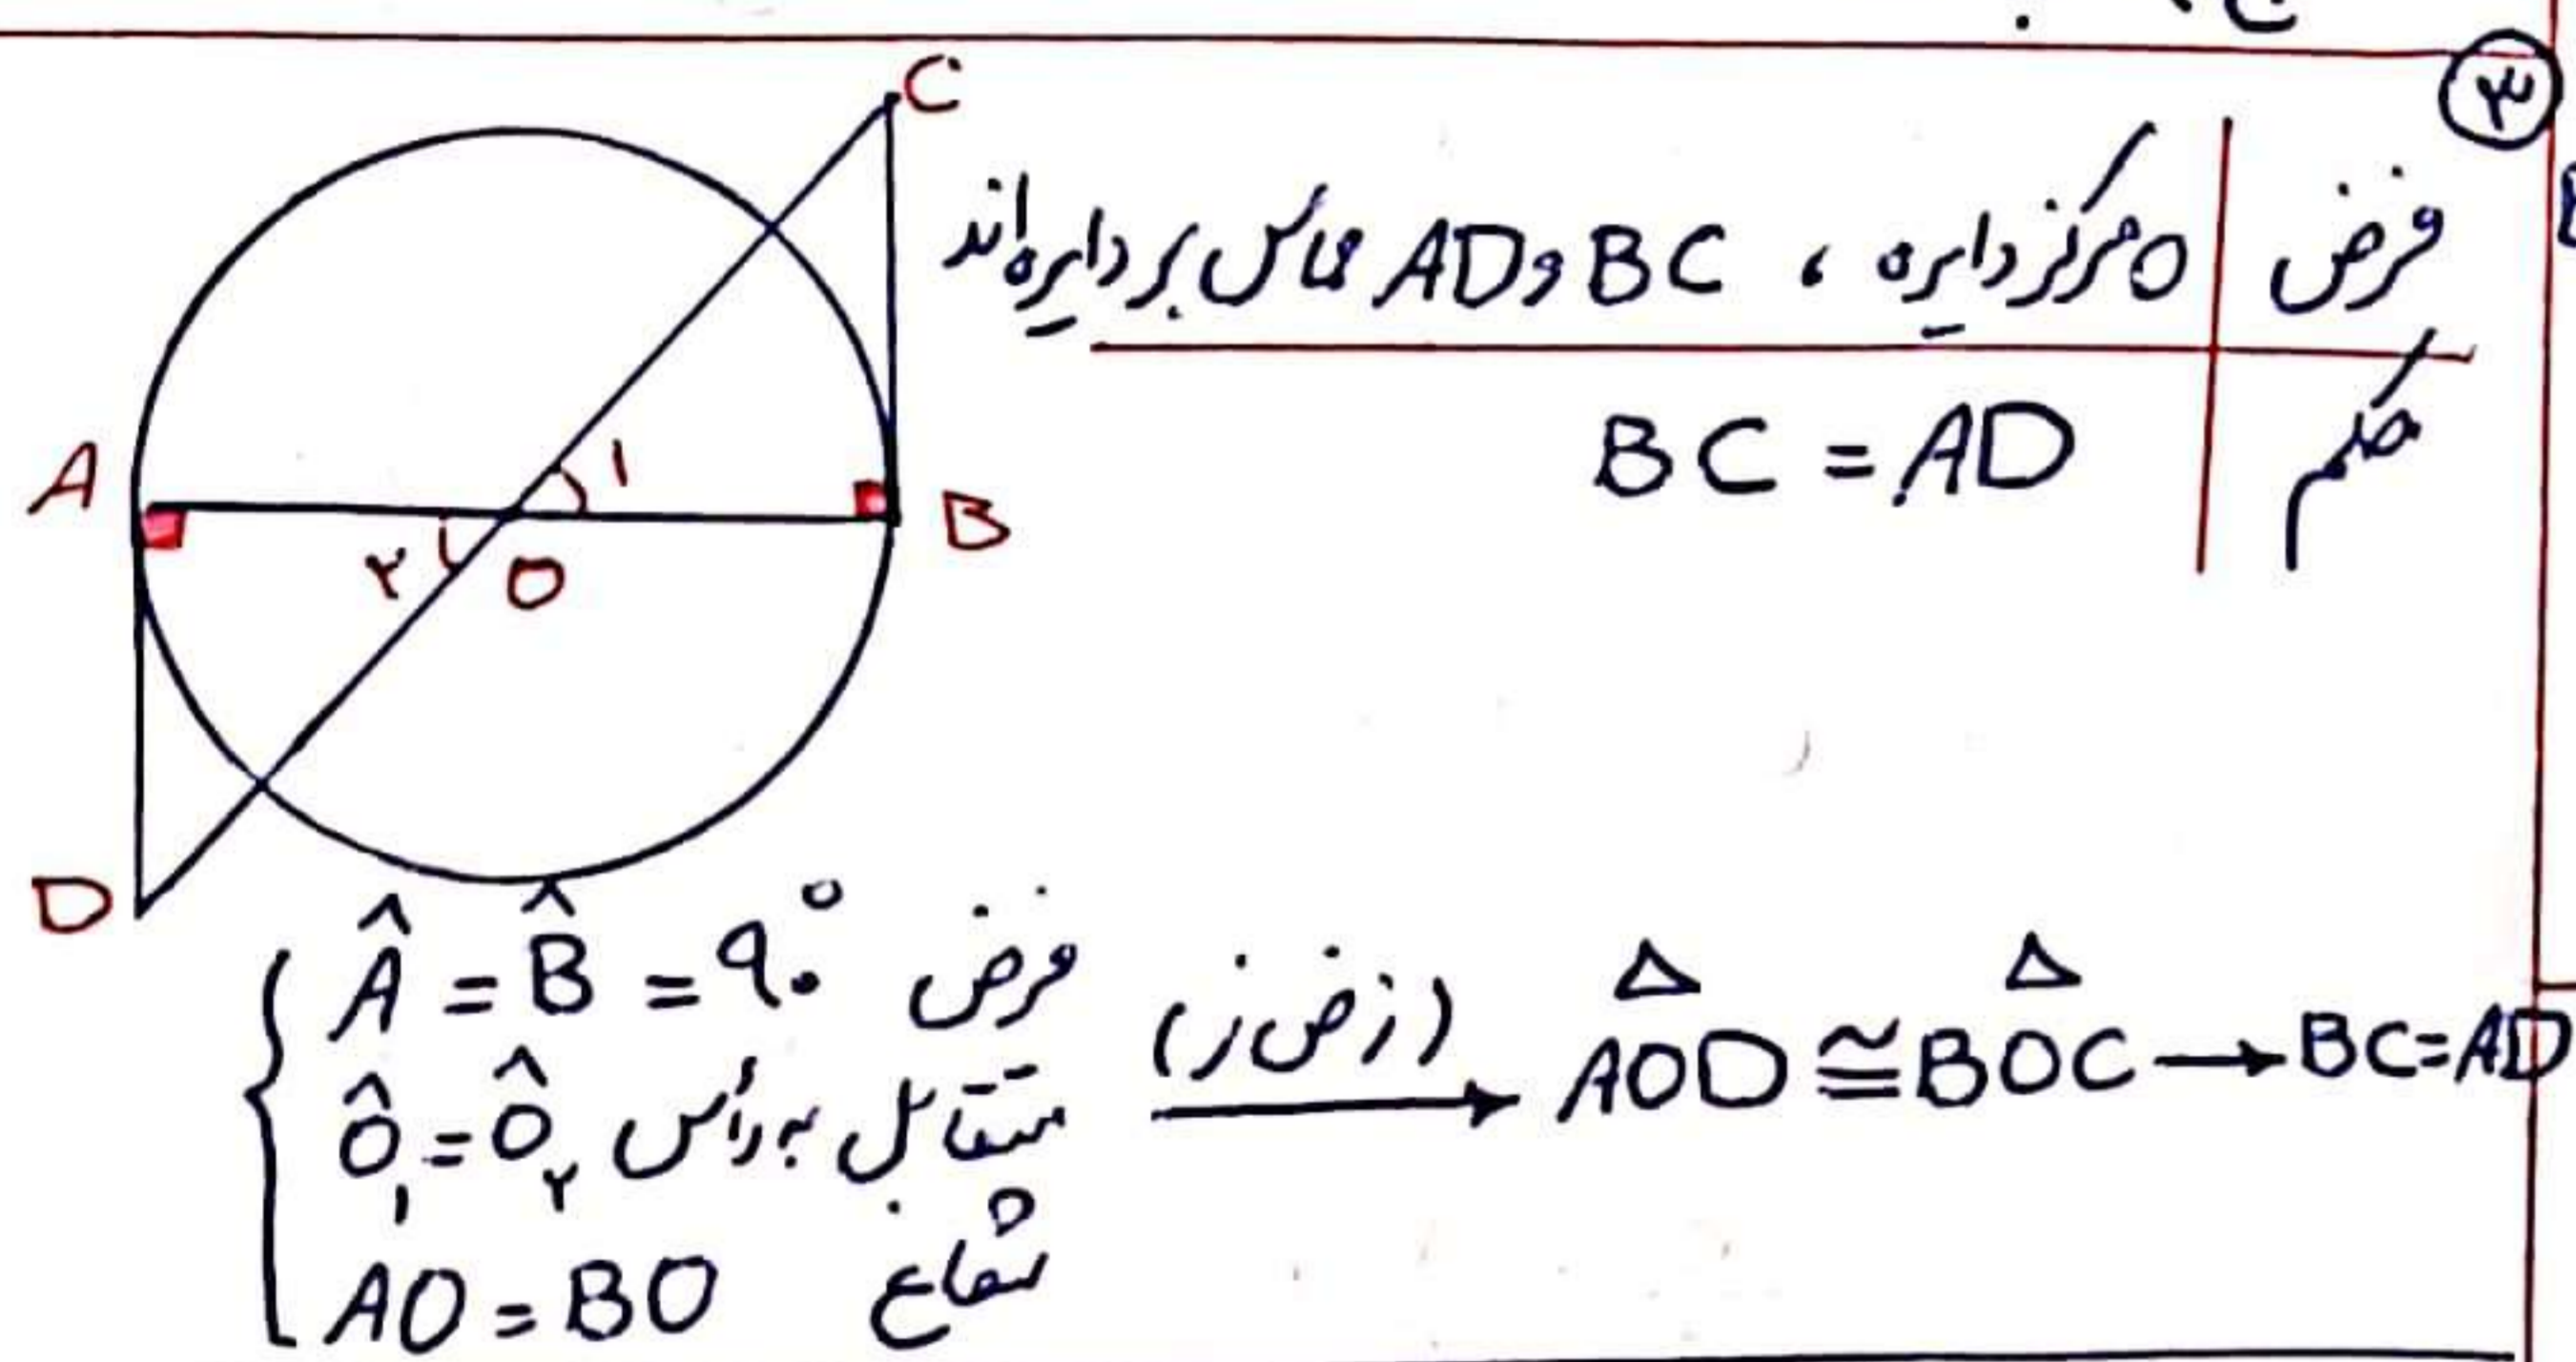 ۳
فرض | O مرکز دایره ، BC و AD مماس بر دایره‌اند
حکم | BC = AD
C
A
۱
B
۲
O
D
Â = B̂ = ۹۰° فرض
Ô۱ = Ô۲ متقابل به رأس
AO = BO شعاع
(ز ض ز)
→ △AOD ≅ △BOC → BC = AD